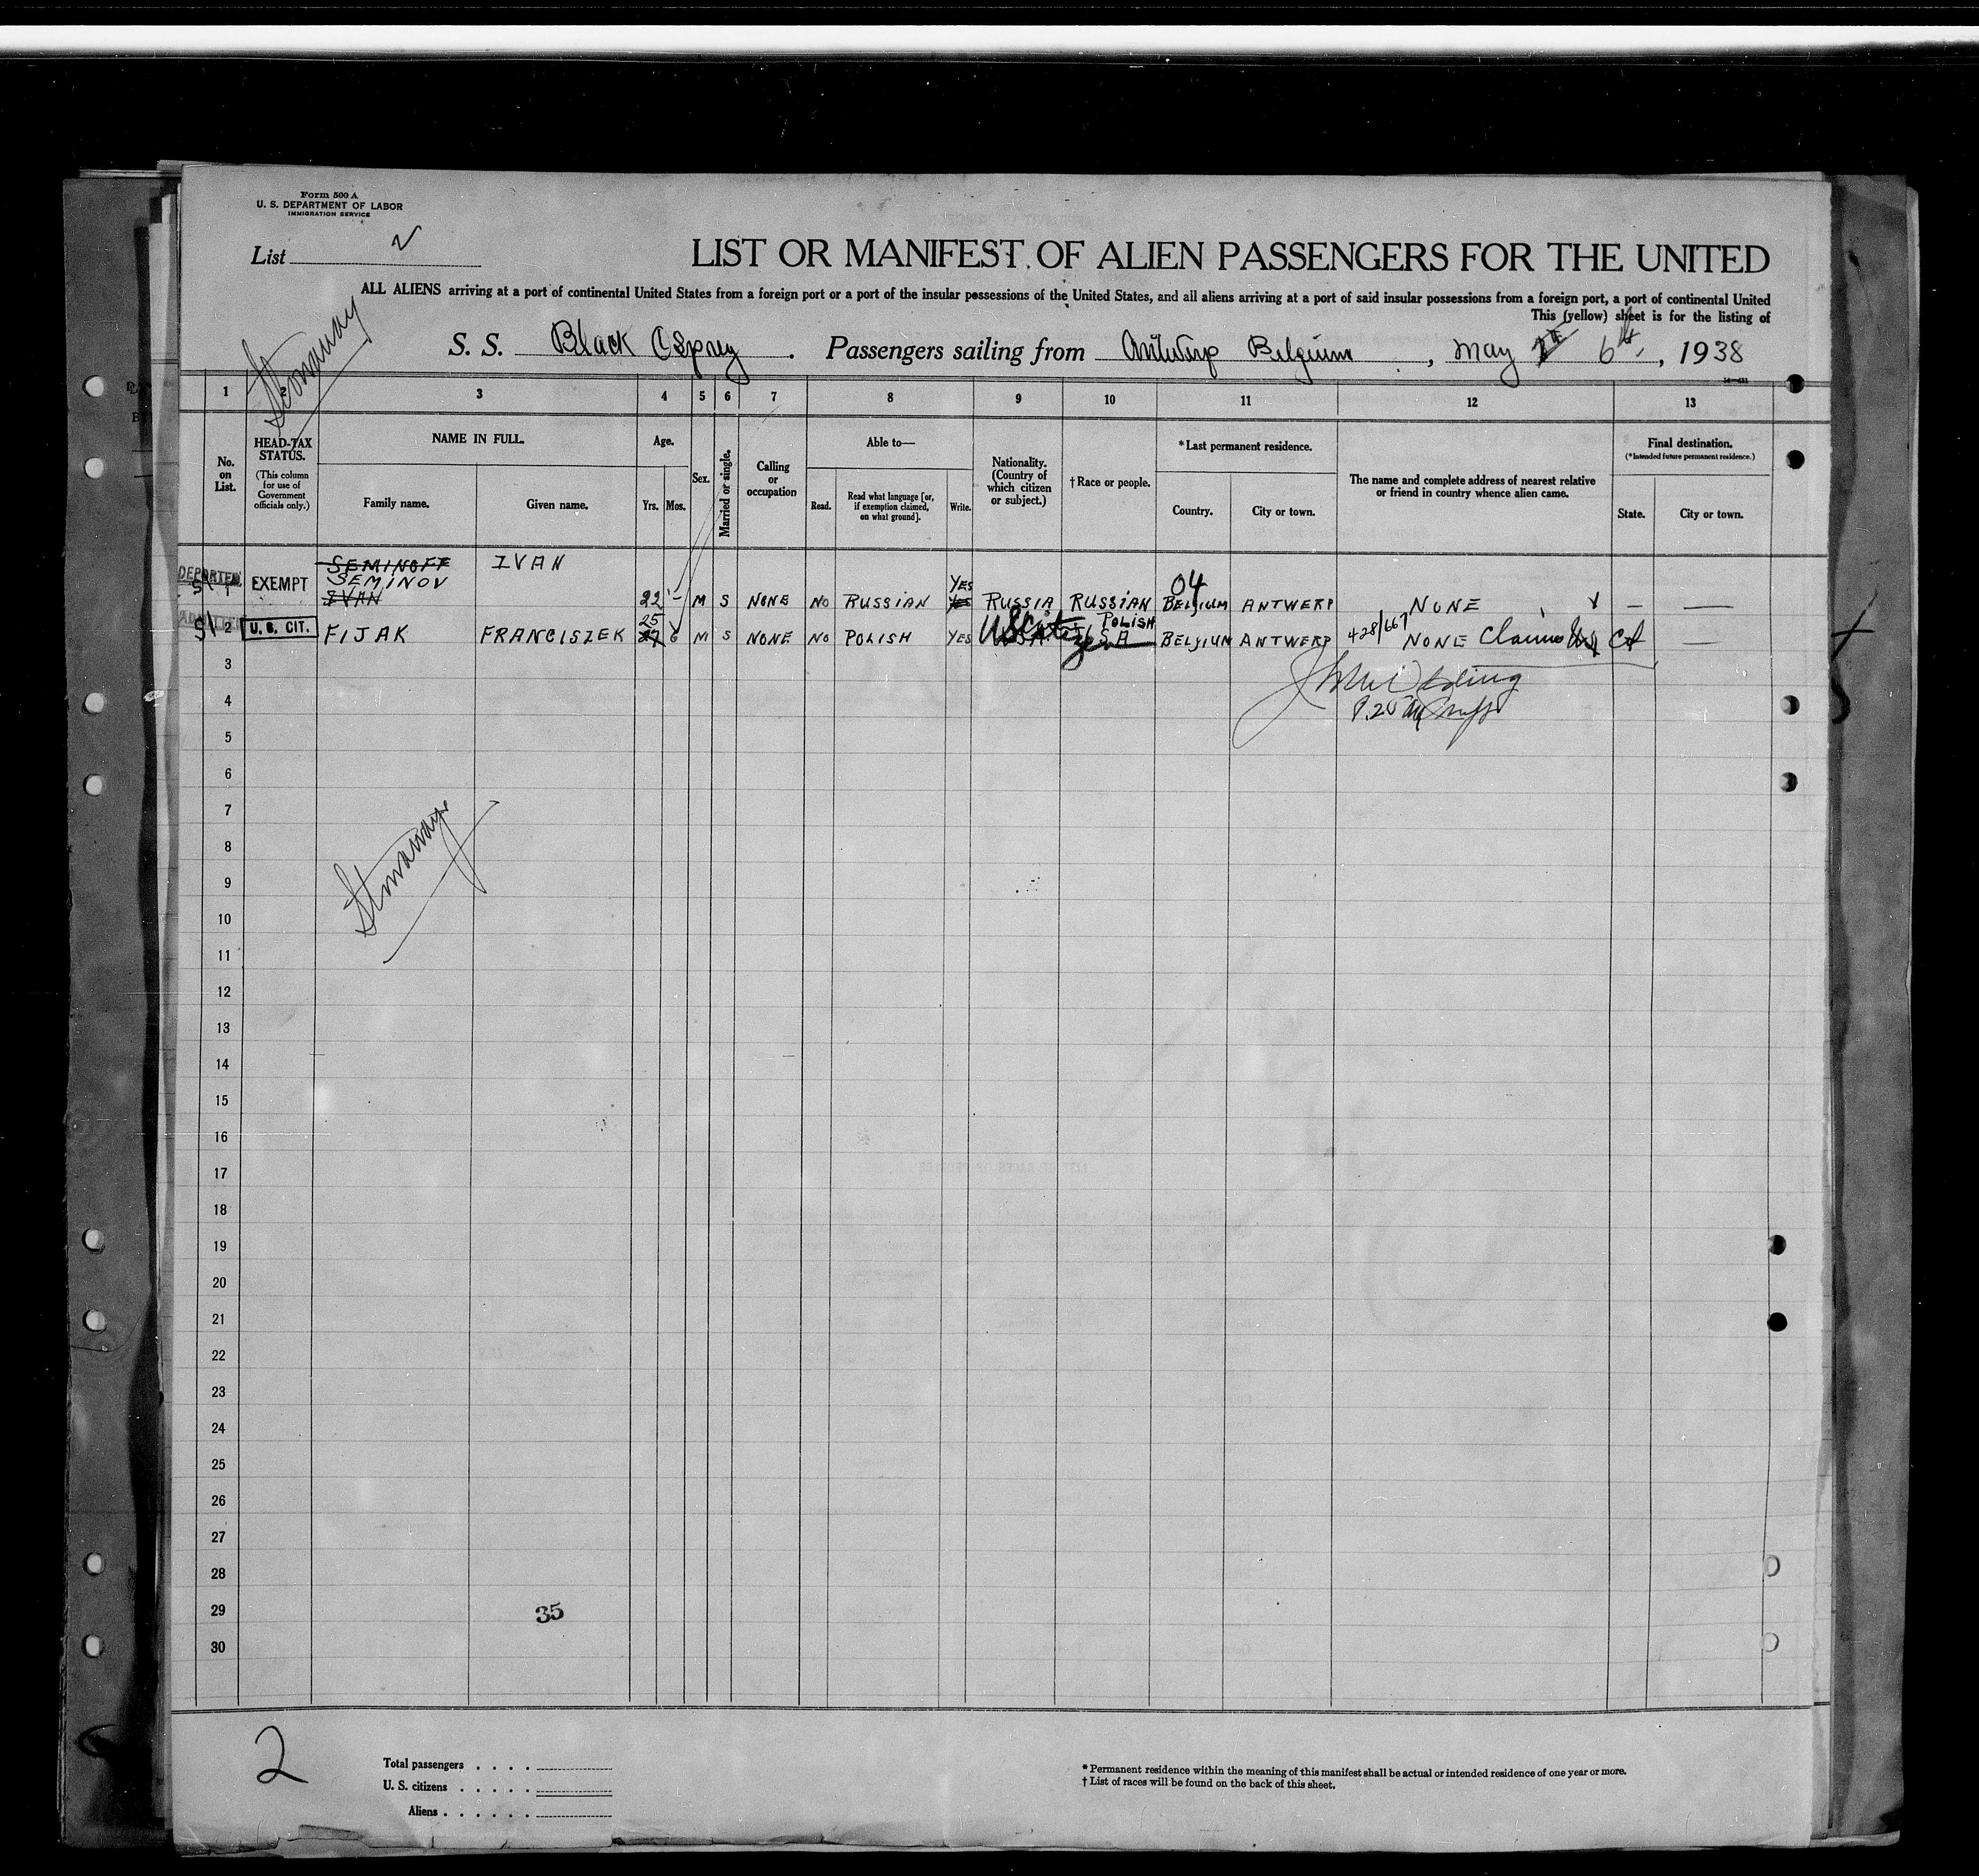 Form 500 A
U. S. DEPARTMENT OF LABOR
IMMIGRATION SERVICE
List 2
LIST OR MANIFEST OF ALIEN PASSENGERS FOR THE UNITED
ALL ALIENS arriving at a port of continental United States from a foreign port or a port of the insular possessions of the United States, and all aliens arriving at a port of said insular possessions from a foreign port, a port of continental United
This (yellow) sheet is for the listing of
Stowaway
S. S. Black Osprey . Passengers sailing from Antwerp Belgium , May 6th , 1938
1 2 3 4 5 6 7 8 9 10 11 12 13
No. on List.
HEAD-TAX STATUS.
(This column for use of Government officials only.)
NAME IN FULL.
Family name. Given name.
Age.
Yrs. Mos.
Sex.
Married or single.
Calling or occupation
Able to—
Read. Read what language [or, if exemption claimed, on what ground]. Write.
Nationality. (Country of which citizen or subject.)
†Race or people.
*Last permanent residence.
Country. City or town.
The name and complete address of nearest relative or friend in country whence alien came.
Final destination.
(*Intended future permanent residence.)
State. City or town.
SEMINOFF IVAN
DEPORTED SEMINOV YES 04
1 EXEMPT IVAN 22 - M S NONE NO RUSSIAN YES RUSSIA RUSSIAN BELGIUM ANTWERP NONE — —
ADMITTED 25 POLISH
2 U. S. CIT. FIJAK FRANCISZEK 6 M S NONE NO POLISH YES US Citizen BELGIUM ANTWERP 428/667 NONE Claims US Ct —
3
4
5
6
7
8
9
10
11
12
13
14
15
16
17
18
19
20
21
22
23
24
25
26
27
28
29
30
Stowaway
35
2
Total passengers . . . .
U. S. citizens . . . . .
Aliens . . . . . .
* Permanent residence within the meaning of this manifest shall be actual or intended residence of one year or more.
† List of races will be found on the back of this sheet.